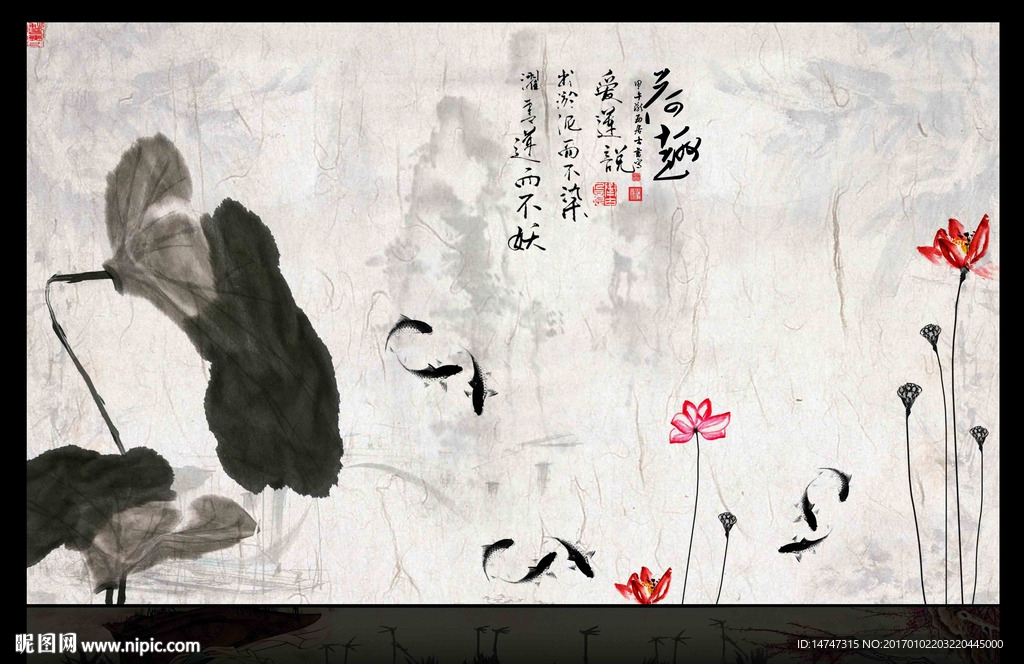 荷趣
甲午秋西居士画写
爱莲說
出淤泥而不染
濯青莲而不妖
昵图网 www.nipic.com
ID:14747315 NO:20170102203220445000